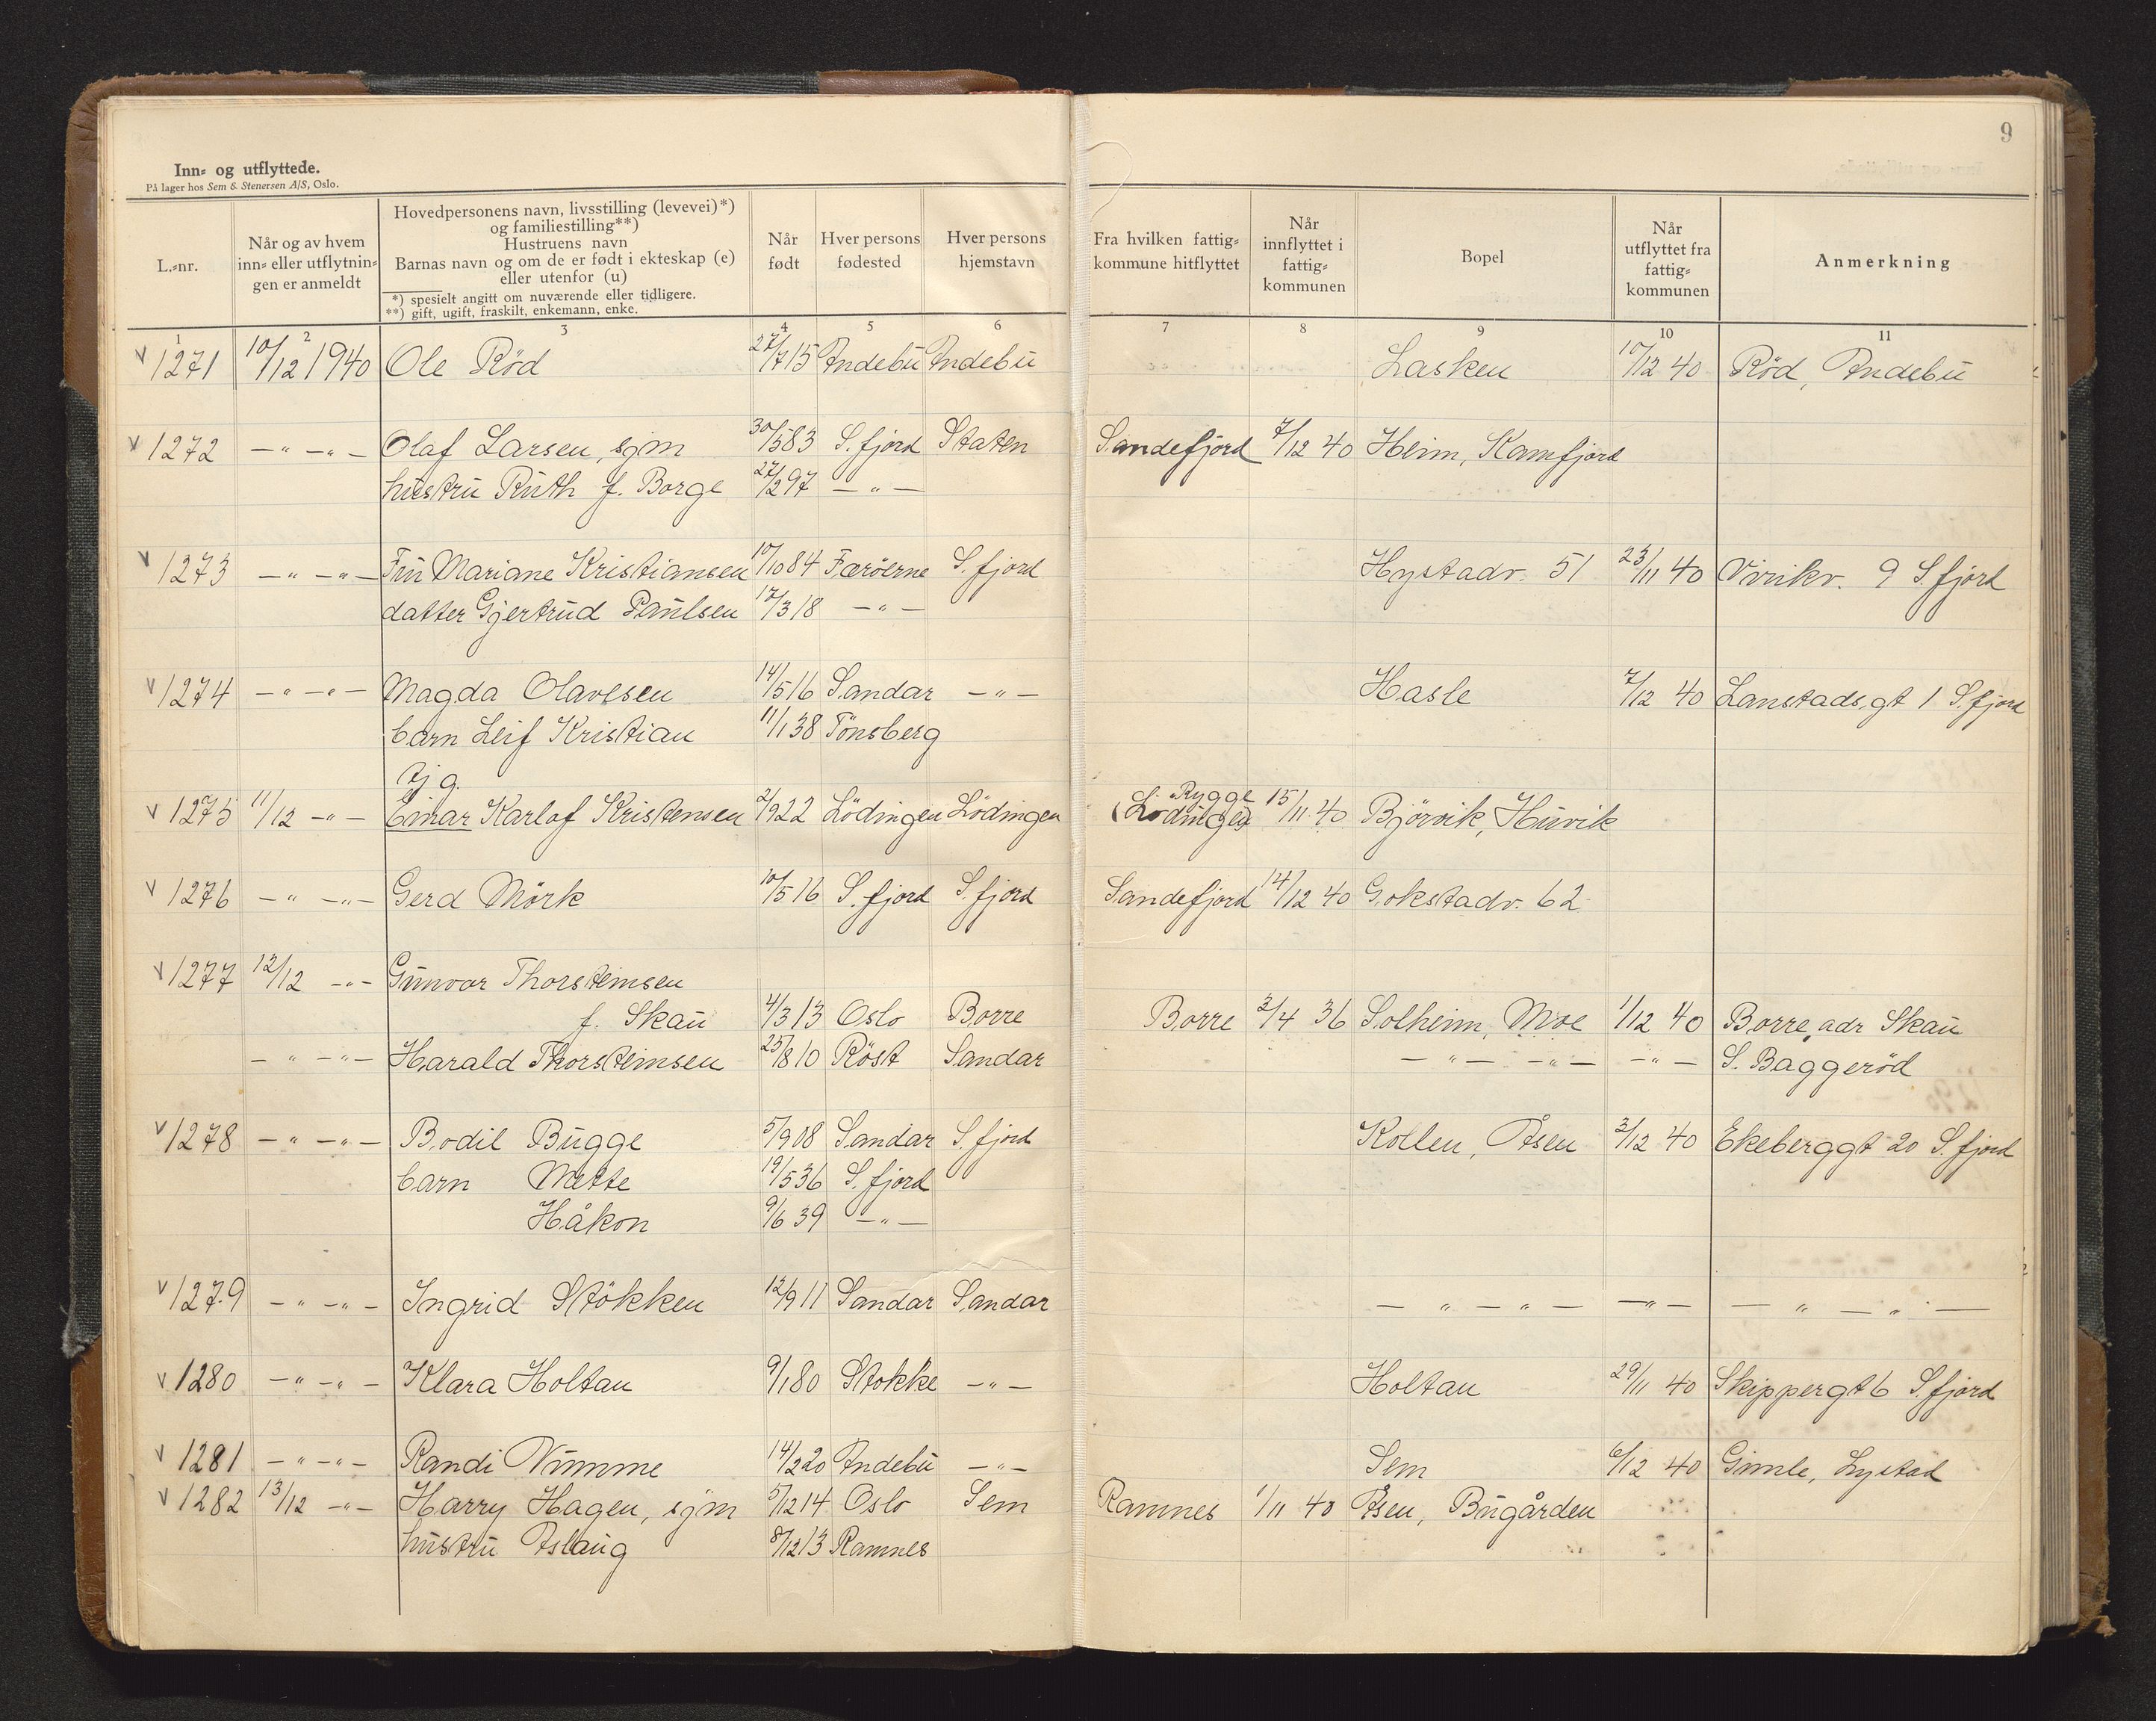 9
Inn- og utflyttede.
På lager hos Sem & Stenersen A/S, Oslo.
L.-nr.
Når og av hvem inn- eller utflytnin-gen er anmeldt
Hovedpersonens navn, livsstilling (levevei)*)
og familiestilling**)
Hustruens navn
Barnas navn og om de er født i ekteskap (e)
eller utenfor (u)
*) spesielt angitt om nuværende eller tidligere.
**) gift, ugift, fraskilt, enkemann, enke.
Når født
Hver persons fødested
Hver persons hjemstavn
Fra hvilken fattig-kommune hitflyttet
Når innflyttet i fattig-kommunen
Bopel
Når utflyttet fra fattig-kommunen
Anmerkning
1 2 3 4 5 6 7 8 9 10 11
v 1271 10/12 1940 Ole Rød 27/7 15 Andebu Andebu Lasken 10/12 40 Rød, Andebu
v 1272 -"- -"- Olaf Larsen, sjm 30/5 83 S.fjord Staten Sandefjord 7/12 40 Heim, Kamfjord
hustru Ruth f. Borge 27/2 97 -"-
v 1273 -"- -"- Fru Mariane Kristiansen 10/10 84 Færöerne S.fjord Hystadv. 51 23/11 40 Virikv. 9 S.fjord
datter Gjertrud Paulsen 17/3 18 -"-
v 1274 -"- -"- Magda Olavesen 14/5 16 Sandar -"- Hasle 7/12 40 Lanstadsgt 1 S.fjord
barn Leif Kristian 11/1 38 Tönsberg
tj g.
v 1275 11/12 -"- Einar Karlof Kristensen 2/9 22 Lödingen Lödingen Rygge (Lödingen) 15/11 40 Björvik, Huvik
v 1276 -"- -"- Gerd Mörk 10/5 16 S.fjord S.fjord Sandefjord 14/12 40 Gokstadv. 62
v 1277 12/12 -"- Gunvor Thorsteinsen
f. Skau 4/3 13 Oslo Borre Borre 3/4 36 Solheim, Moe 1/12 40 Borre, adr Skau
-"- -"- Harald Thorsteinsen 25/8 10 Röst Sandar -"- -"- -"- S. Baggeröd
v 1278 -"- -"- Bodil Bugge 5/9 08 Sandar S.fjord Kollen, Åsen 3/12 40 Ekeberggt 20 S.fjord
barn Mette 19/5 36 S.fjord
Håkon 9/6 39 -"-
v 1279 -"- -"- Ingrid Stökken 12/9 11 Sandar Sandar -"-"- -"- -"-"-
v 1280 -"- -"- Klara Holtan 9/1 80 Stokke -"- Holtan 29/11 40 Skippergt 6 S.fjord
v 1281 -"- -"- Randi Vimme 14/2 20 Andebu -"- Sem 6/12 40 Gimle, Lystad
v 1282 13/12 -"- Harry Hagen, sjm 5/12 14 Oslo Sem Ramnes 1/11 40 Åsen, Bugården
hustru Aslaug 8/12 13 Ramnes